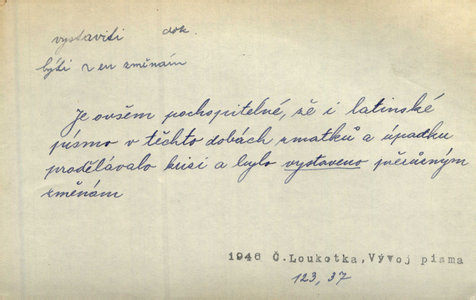 vystaviti dok.
býti z en změnám
Je ovšem pochopitelné, že i latinské
písmo v těchto dobách zmatků a úpadku
prodělávalo krisi a bylo vystaveno přerůzným
změnám
1946 Č.Loukotka,Vývoj písma
123, 37